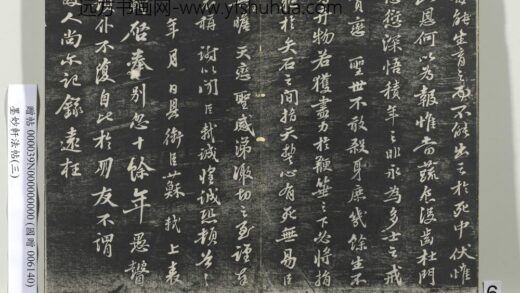 远方书画网- www.yfshuhua.com
能生育之而不能出之於死中伏惟
此恩何以為報惟當蔬食沒齒杜門
愆深悟積年之非永為多士之戒
貪戀 聖世不敢殺身庶幾餘生未
弃物若獲盡力於鞭箠之下必將捐
於矢石之間指天誓心有死無易臣
瞻戀聖威涕激切之至謹奉
稱謝以聞臣軾誠惶誠恐頓首
年月日具銜臣蘇軾上表
啓奉別忽十餘年愚瞽
仆不復自比於朋友不謂
故人尚尔記錄遠枉
贈帖 000039N000000000 (國贈 006140)
墨妙軒法帖(三)